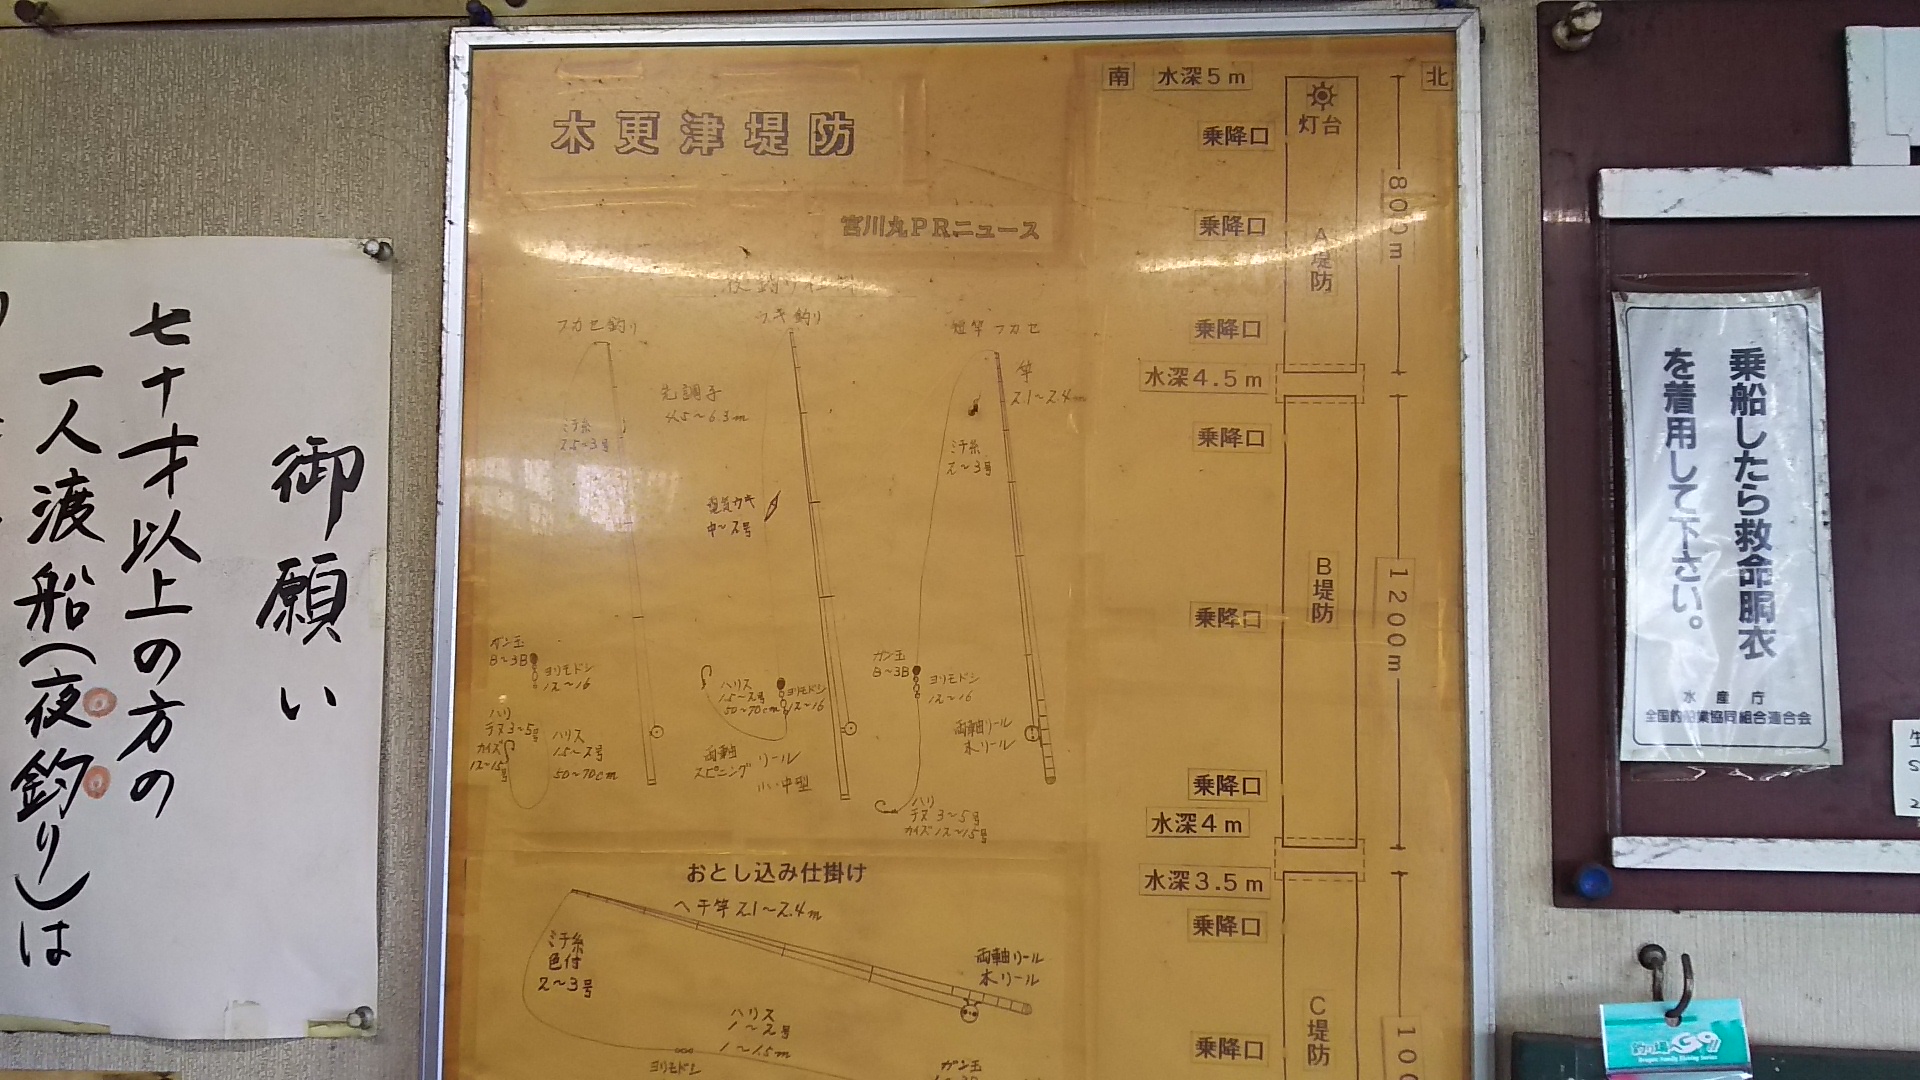 御願い
七十才以上の方の
一人渡船(夜釣り)は
木更津堤防
宮川丸PRニュース
夜釣り仕掛
フカセ釣り
ウキ釣り
短竿フカセ
先調子
4.5~6.3m
竿
2.1~2.4m
ミチ糸
2.5~3号
ミチ糸
2~3号
電気ウキ
中~2号
ガン玉
B~3B
ヨリモドシ
12~16
ハリ
チヌ3~5号
カイズ
12~15号
ハリス
1.5~2号
50~70cm
ハリス
1.5~2号
50~70cm
ヨリモドシ
12~16
両軸
スピニング
リール
小中型
ガン玉
B~3B
ヨリモドシ
12~16
両軸リール
木リール
ハリ
チヌ3~5号
カイズ12~15号
おとし込み仕掛け
ヘチ竿2.1~2.4m
ミチ糸
色付
2~3号
両軸リール
木リール
ハリス
1~2号
1~1.5m
ヨリモドシ
ガン玉
南
水深5m
北
灯台
乗降口
乗降口
A堤防
800m
乗降口
水深4.5m
乗降口
B堤防
1200m
乗降口
乗降口
水深4m
水深3.5m
乗降口
C堤防
乗降口
乗船したら救命胴衣
を着用して下さい。
水産庁
全国釣船業協同組合連合会
釣り場へGO!!